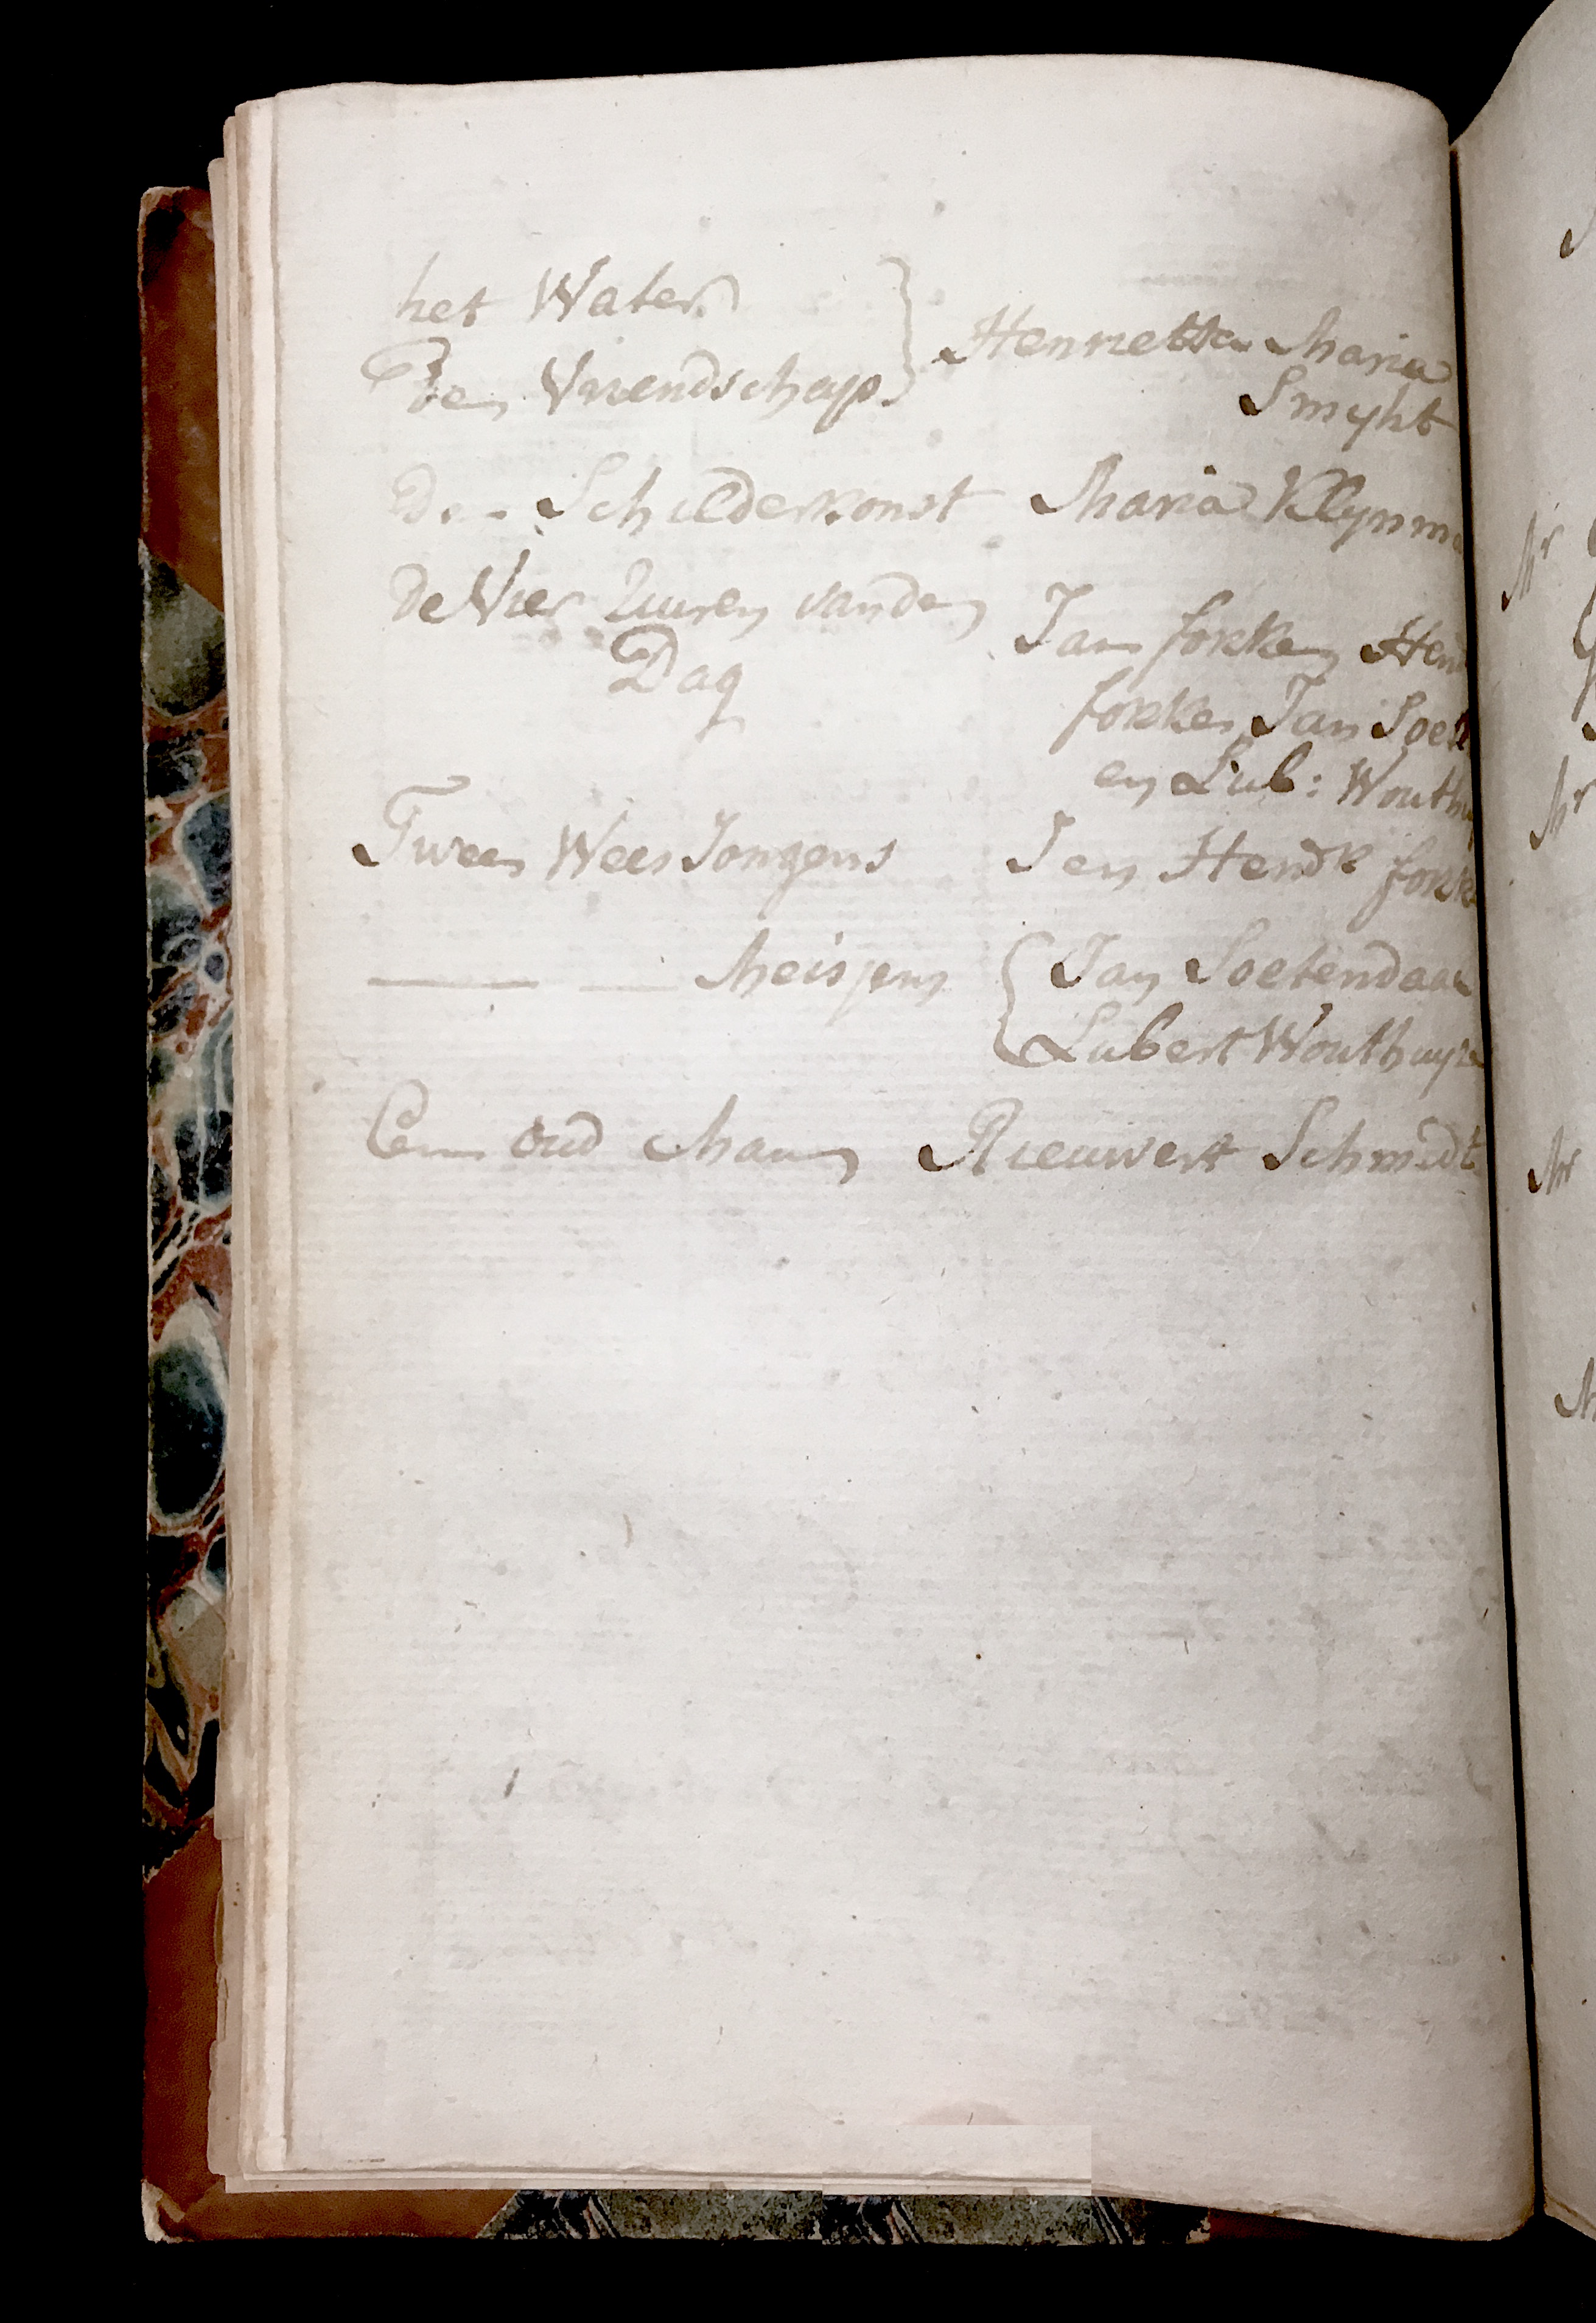 het Water
De Vriendschap } Henrietta Maria
Smyht
De Schilderkonst Maria Klynm
De Vier Uuren van den Jan fokke Hen
Dag fokke Jan Soet
en Lub: Wouth
Twee Wees Jongens J en Hendk fokk
Meisjens { Jan Soetendaa
Lubert Wouthuyz
Een oud Man Rieuwert Schmidt